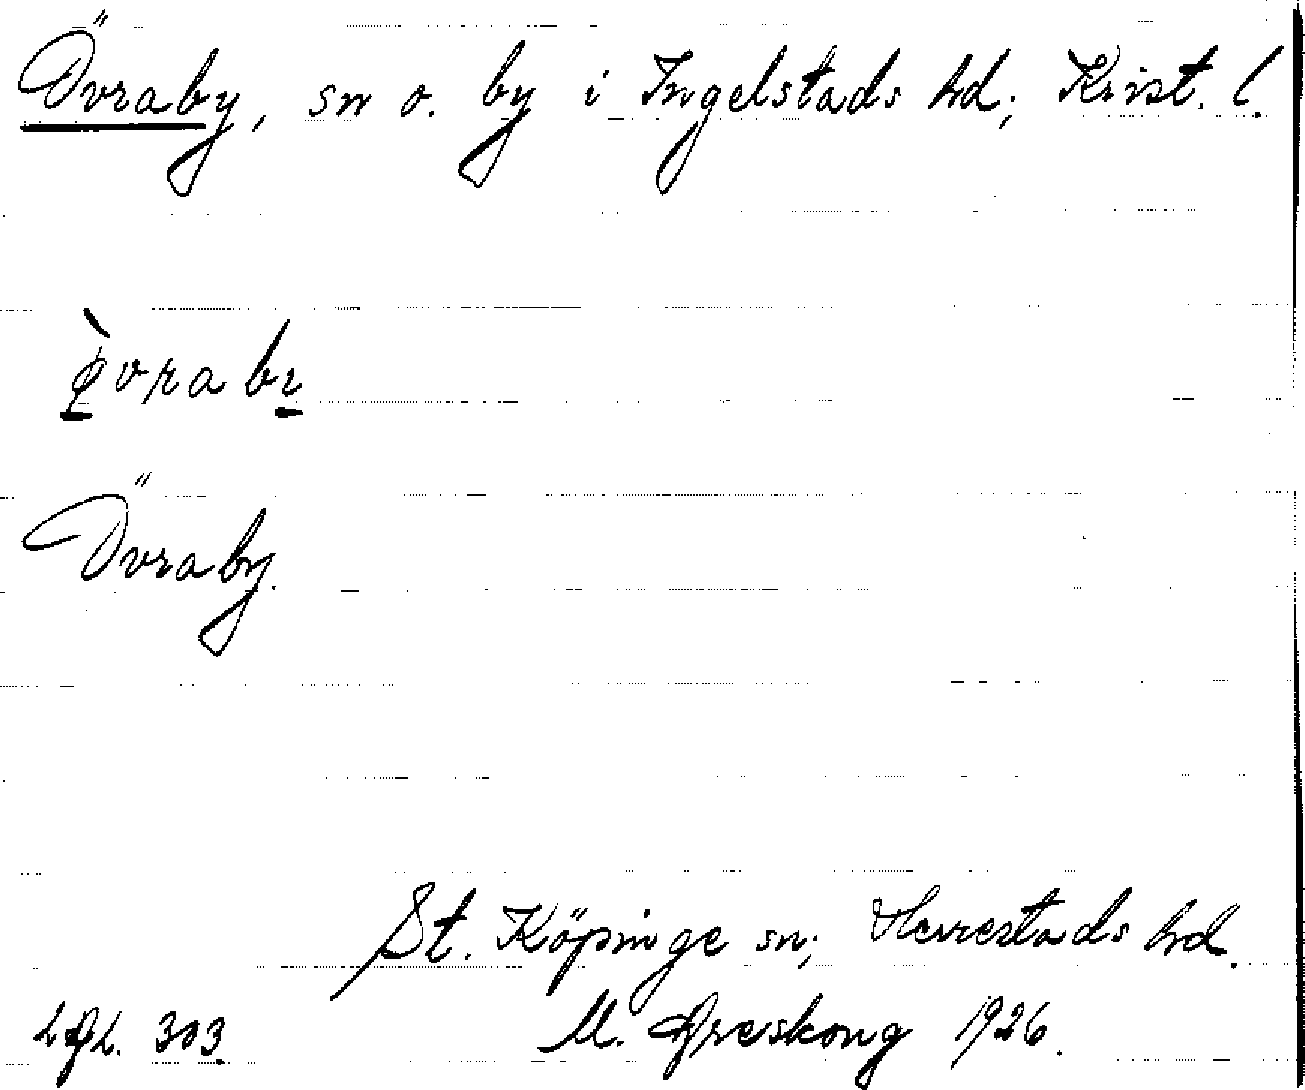 Övraby, sn o. by i Ingelstads hd; Krist. l.
ø̀vrabı
Övraby.
St. Köpinge sn; Herrestads hd.
303 M. Areskoug 1926.